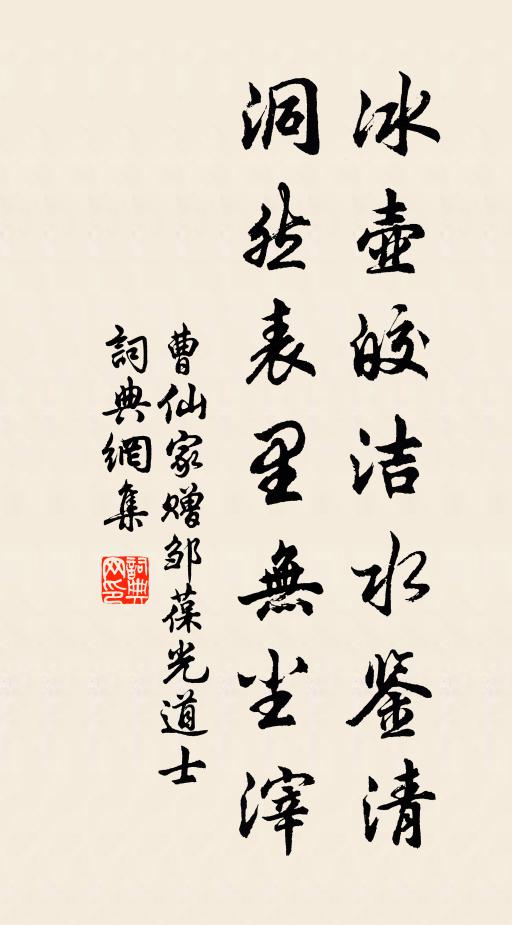 冰壺皎洁水鉴清
洞然表里無尘滓
曹仙家赠邹葆光道士
詞典網集
詞典网印